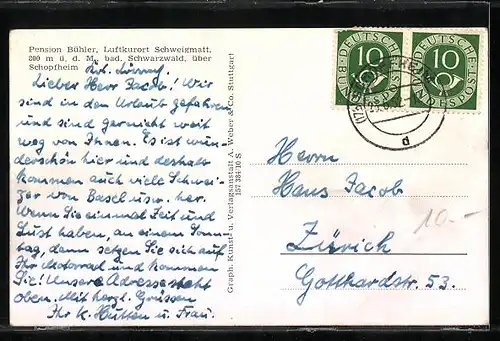 Pension Bühler, Luftkurort Schweigmatt,
800 m ü. d. M., bad. Schwarzwald, über
Schopfheim
Krs. Lörrach.
Lieber Herr Jacob! Wir
sind in den Urlaub gefahren
und sind garnicht weit
weg von Ihnen. Es ist wun-
derschön hier und deshalb
kommen auch viele Schwei-
zer von Basel usw. her.
Wenn Sie einmal Zeit und
Lust haben, an einem Sonn-
tag, dann setzen Sie sich auf
Ihr Motorrad und kommen
Sie! Unsere Adresse steht
oben. Mit herzl. Grüssen
Ihr K. Hütten u. Frau.
Graph. Kunst- u. Verlagsanstalt A. Weber & Co. Stuttgart
157 334/10 S
DEUTSCHE BUNDESPOST
10
DEUTSCHE BUNDESPOST
10
Herrn
Hans Jacob
Zürich
Gotthardstr. 53.
10.-